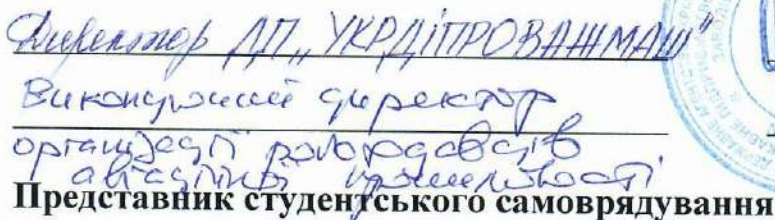 Директор ДП „УКРДІПРОВАЖМАШ"
Виконуючий директор
організації роботодавців
авіаційної промисловості
Представник студентського самоврядування